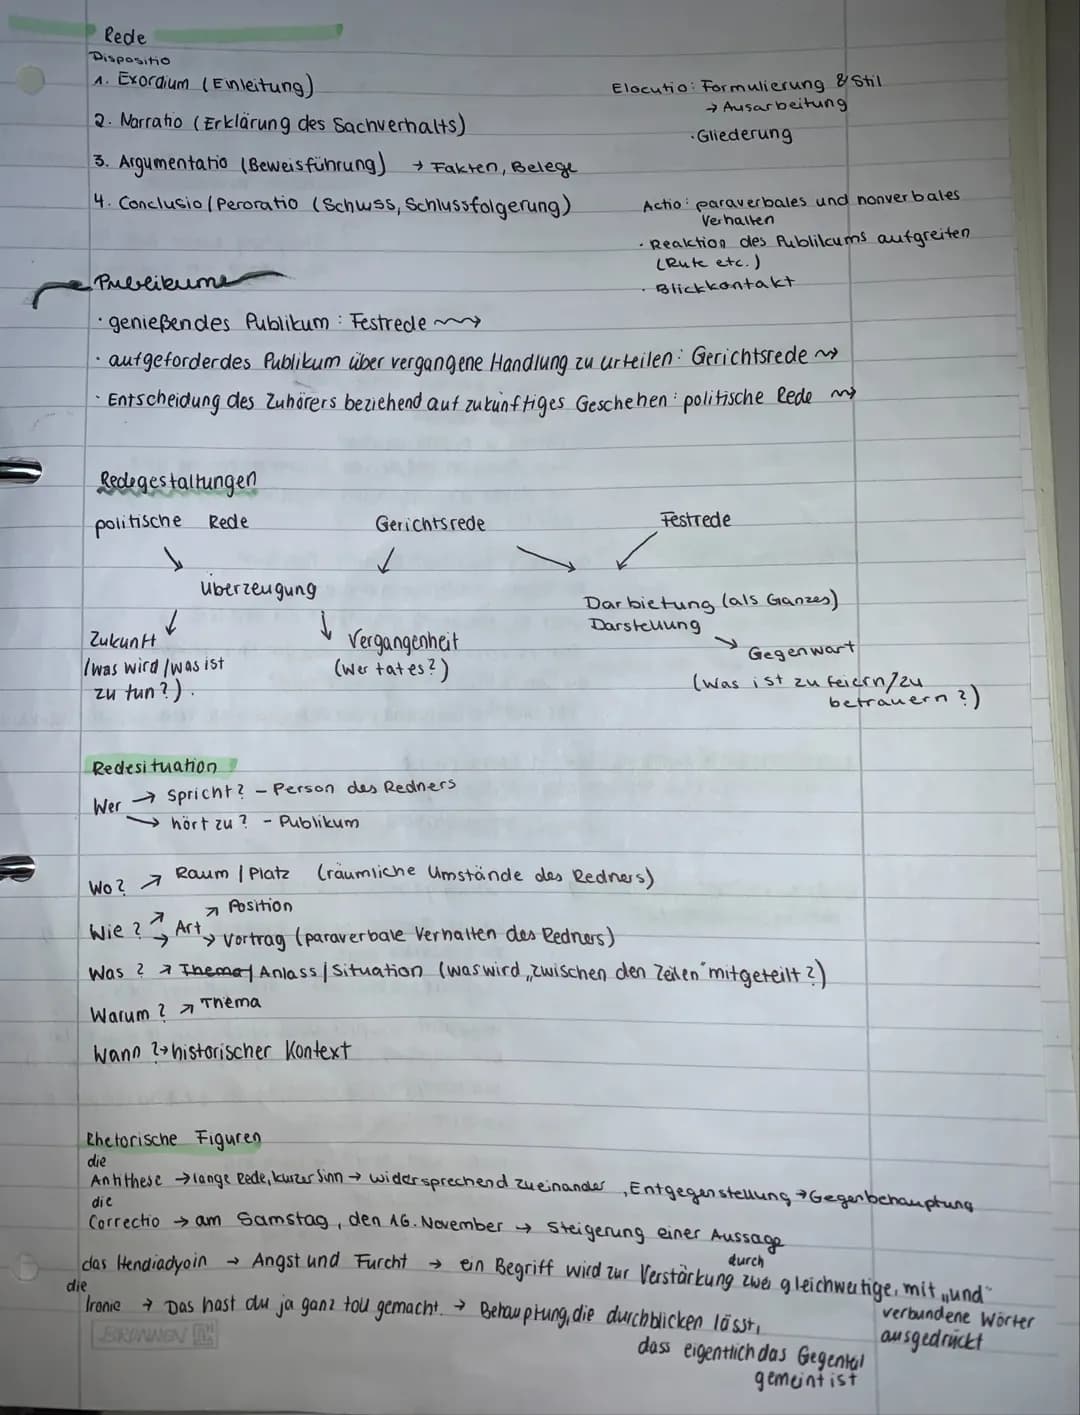 Rede
Dispositio
1. Exordium (Einleitung)
2. Narratio (Erklärung des Sachverhalts)
3. Argumentatio (Beweisführung) → Fakten, Belege
4. Conclusio / Peroratio (Schluss, Schlussfolgerung)
Elocutio: Formulierung & Stil
→ Ausarbeitung
· Gliederung
Actio: paraverbales und nonverbales
Verhalten
· Reaktion des Publikums aufgreifen
(Rufe etc.)
· Blickkontakt
Publikum
· genießendes Publikum: Festrede
· aufgeforderdes Publikum über vergangene Handlung zu urteilen: Gerichtsrede
· Entscheidung des Zuhörers beziehend auf zukünftiges Geschehen: politische Rede
Redegestaltungen
politische Rede Gerichtsrede Festrede
überzeugung
Darbietung (als Ganzes)
Darstellung
Zukunft
(was wird / was ist
zu tun?).
Vergangenheit
(Wer tat es?)
Gegenwart
(Was ist zu feiern/zu
betrauern?)
Redesituation
Wer → spricht? - Person des Redners
→ hört zu? - Publikum
Wo? → Raum / Platz (räumliche Umstände des Redners)
Wie? → Art → Position
→ Vortrag (paraverbale Verhalten des Redners)
Was? → Thema / Anlass / Situation (was wird „zwischen den Zeilen" mitgeteilt?)
Warum? → Thema
Wann? → historischer Kontext
Rhetorische Figuren
die
Antithese → lange Rede, kurzer Sinn → widersprechend zueinander, Entgegenstellung → Gegenbehauptung
die
Correctio → am Samstag, den 16. November → Steigerung einer Aussage
das Hendiadyoin → Angst und Furcht → ein Begriff wird zur Verstärkung durch zwei gleichwertige, mit „und"
verbundene Wörter
ausgedrückt
die
Ironie → Das hast du ja ganz toll gemacht. → Behauptung, die durchblicken lässt,
dass eigentlich das Gegenteil
gemeint ist
BRUNNEN